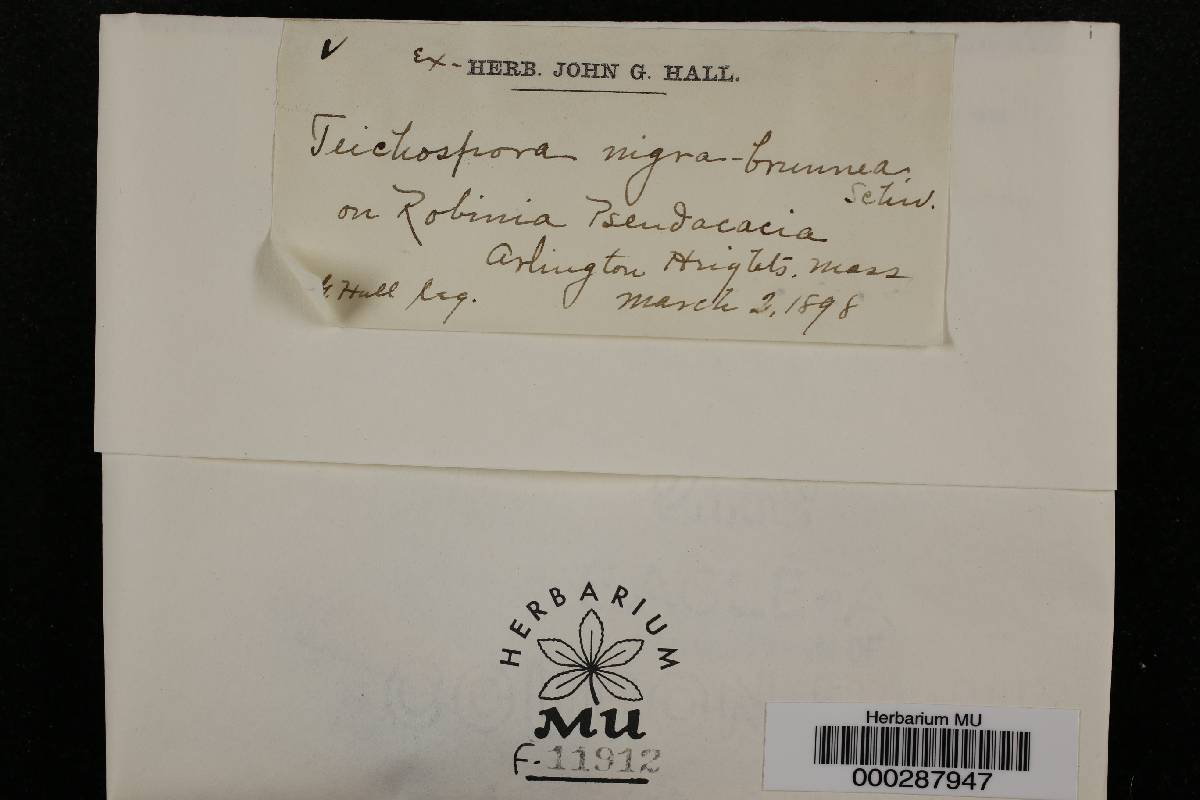 ✓ Ex- HERB. JOHN G. HALL.
Teichospora nigra-brunnea
Schw.
on Robinia Pseudacacia
Arlington Heights. Mass
G. Hall Leg. March 2, 1898
HERBARIUM
MU
F-11912
Herbarium MU
000287947